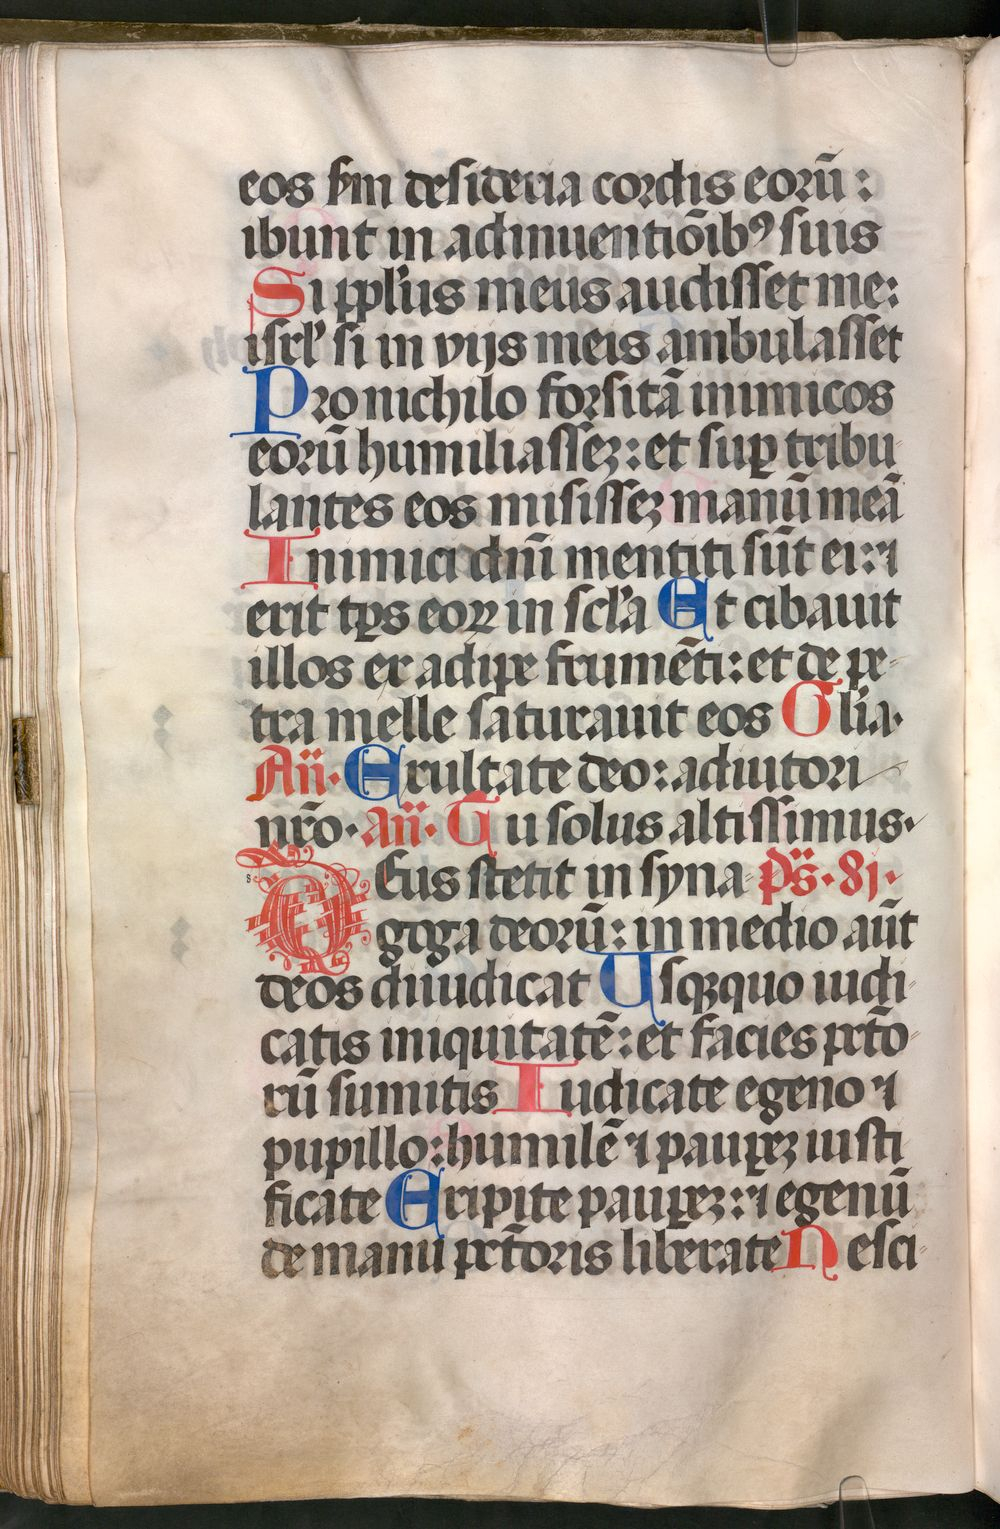 eos s̄m desideria cordis eorū :
ibunt in adinuentiōibꝰ suis
Si ppl'us meus audisset me:
isrl' si in vijs meis ambulasset
Pro nichilo forsitā inimicos
eorū humiliassez: et suꝑ tribu-
lantes eos misissez manū meā
Inimici dn̄i mentiti sūt ei: ⁊
erit tp̄s eoꝝ in scl'a Et cibauit
illos ex adipe frumēti: et de pe-
tra melle saturauit eos Gl'ia.
An̄. Exultate deo: adiutori
nr̄o. an̄. Tu solus altissimus.
DEus stetit in syna ps̄. 81.
goga deorū: in medio aūt
deos diiudicat Usqꝫquo iudi-
catis iniquitatē: et facies pctō-
rū sumitis Iudicate egeno ⁊
pupillo: humilē ⁊ pauꝑez iusti
ficate Eripite pauꝑez: ⁊ egenū
de manu pctōris liberate Nesci-